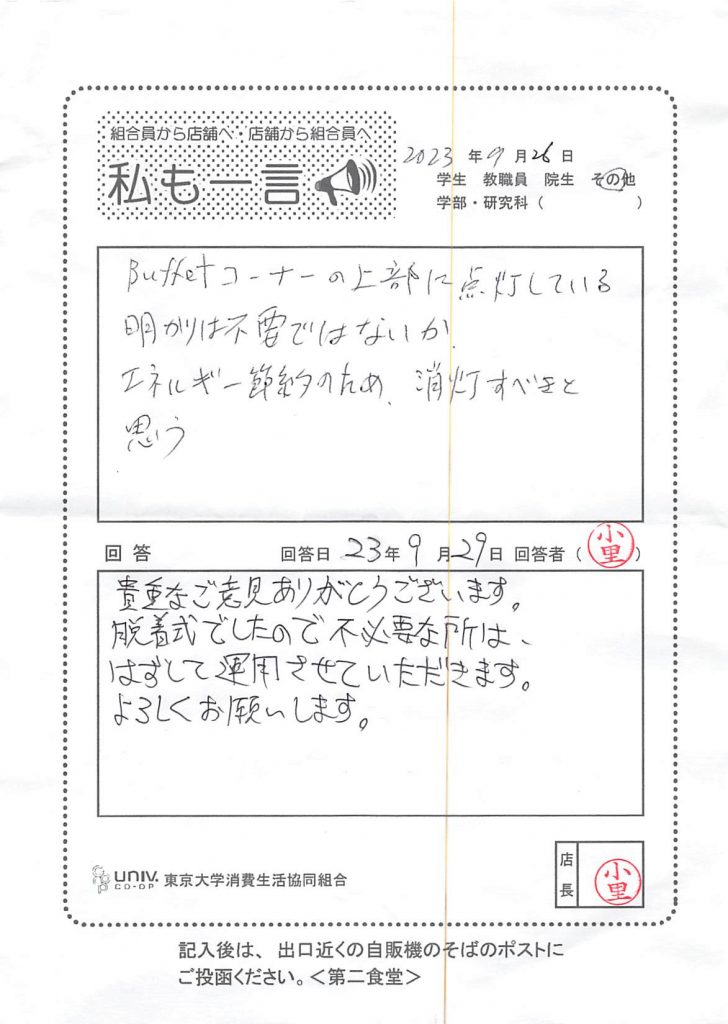 組合員から店舗へ・店舗から組合員へ
私も一言
2023 年 9 月 26 日
学生 教職員 院生 その他
学部・研究科（ ）
Buffetコーナーの上部に点灯している
明かりは不要ではないか.
エネルギー節約のため、消灯すべきと
思う
回答 回答日 23年 9 月 29日 回答者（小里）
貴重なご意見ありがとうございます。
脱着式でしたので不必要な所は、
はずして運用させていただきます。
よろしくお願いします。
店長 小里
coop UNIV. CO-OP 東京大学消費生活協同組合
記入後は、出口近くの自販機のそばのポストに
ご投函ください。＜第二食堂＞